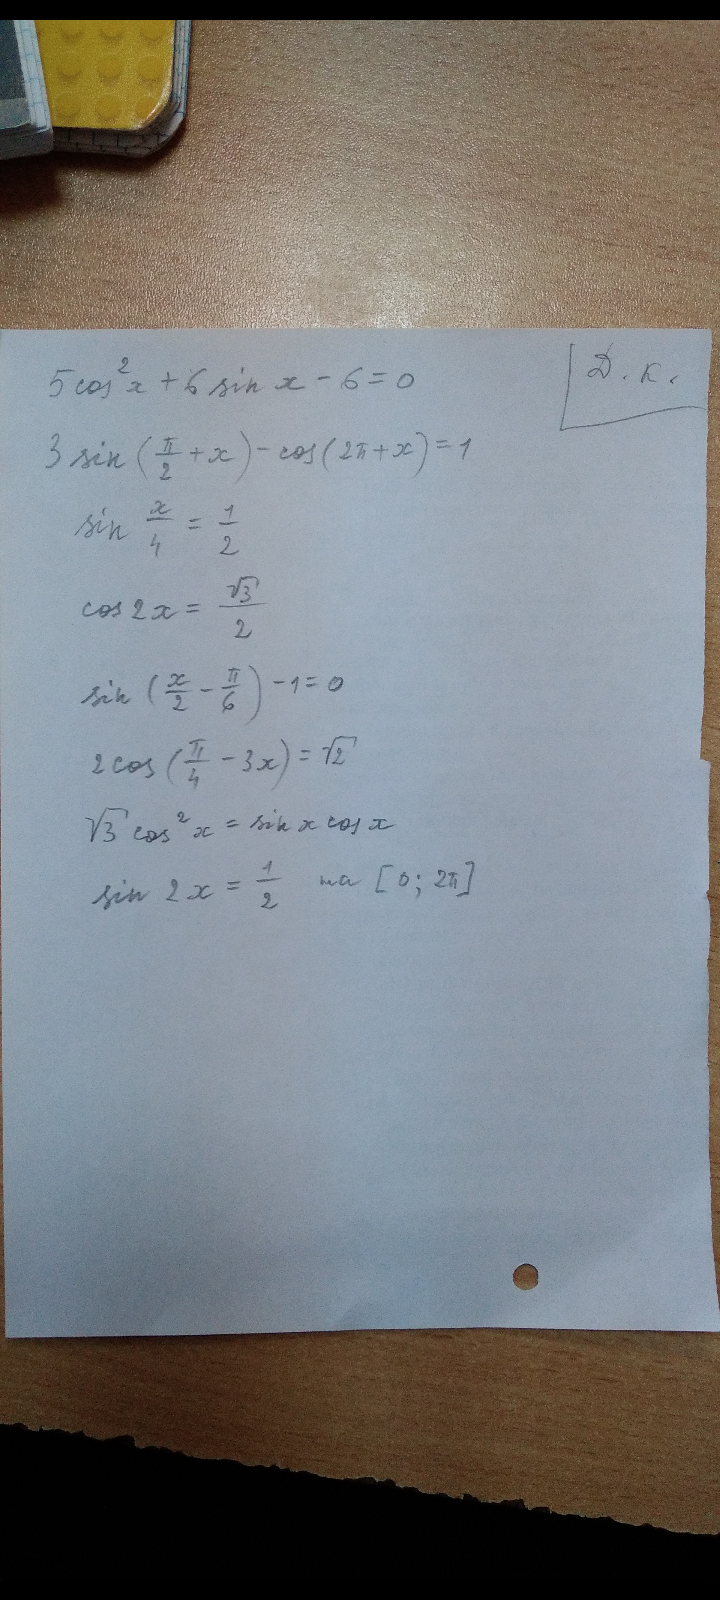 5 cos²x + 6 sin x - 6 = 0
Д. К.
3 sin (π/2 + x) - cos(2π + x) = 1
sin x/4 = 1/2
cos 2x = √3/2
sin (x/2 - π/6) - 1 = 0
2 cos (π/4 - 3x) = √2
√3 cos²x = sin x cos x
sin 2x = 1/2 на [0; 2π]